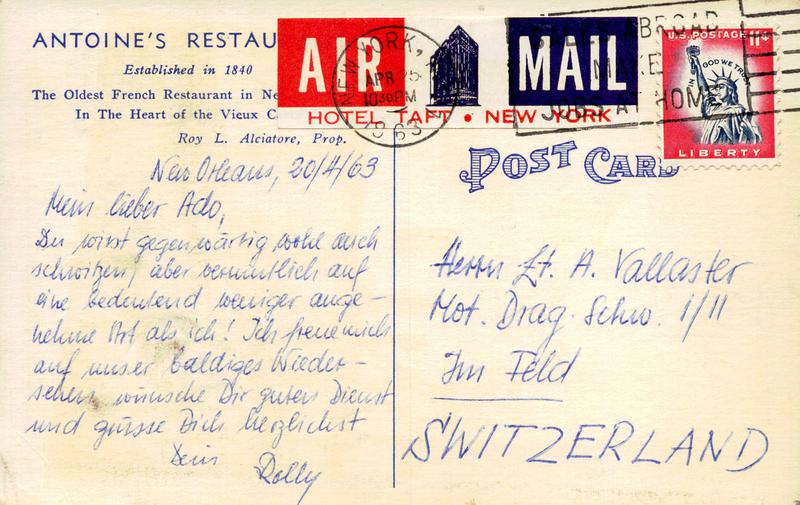 ANTOINE'S RESTAU
Established in 1840
The Oldest French Restaurant in Ne
In The Heart of the Vieux C
Roy L. Alciatore, Prop.
AIR MAIL
HOTEL TAFT • NEW YORK
NEW YORK,
APR 25
10 30 PM
1963
SALES ABROAD
MAKE
JOBS AT HOME
U.S. POSTAGE 11¢
IN GOD WE TRUST
LIBERTY
POST CARD
New Orleans, 20/4/63
Mein lieber Ado,
Du wirst gegenwärtig wohl auch
schwitzen, aber vermutlich auf
eine bedeutend weniger ange-
nehme Art als ich! Ich freue mich
auf unser baldiges Wieder-
sehen, wünsche Dir guten Dienst
und grüsse Dich herzlichst
Dein
Rolly
Herrn Lt. A. Vallaster
Mot. Drag. Schw. 1/11
Im Feld
SWITZERLAND